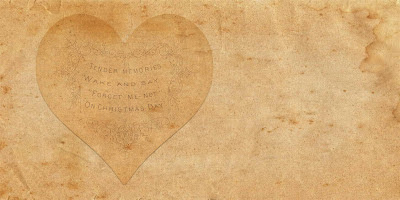 TENDER MEMORIES
WAKE AND SAY
"FORGET-ME-NOT"
ON CHRISTMAS DAY